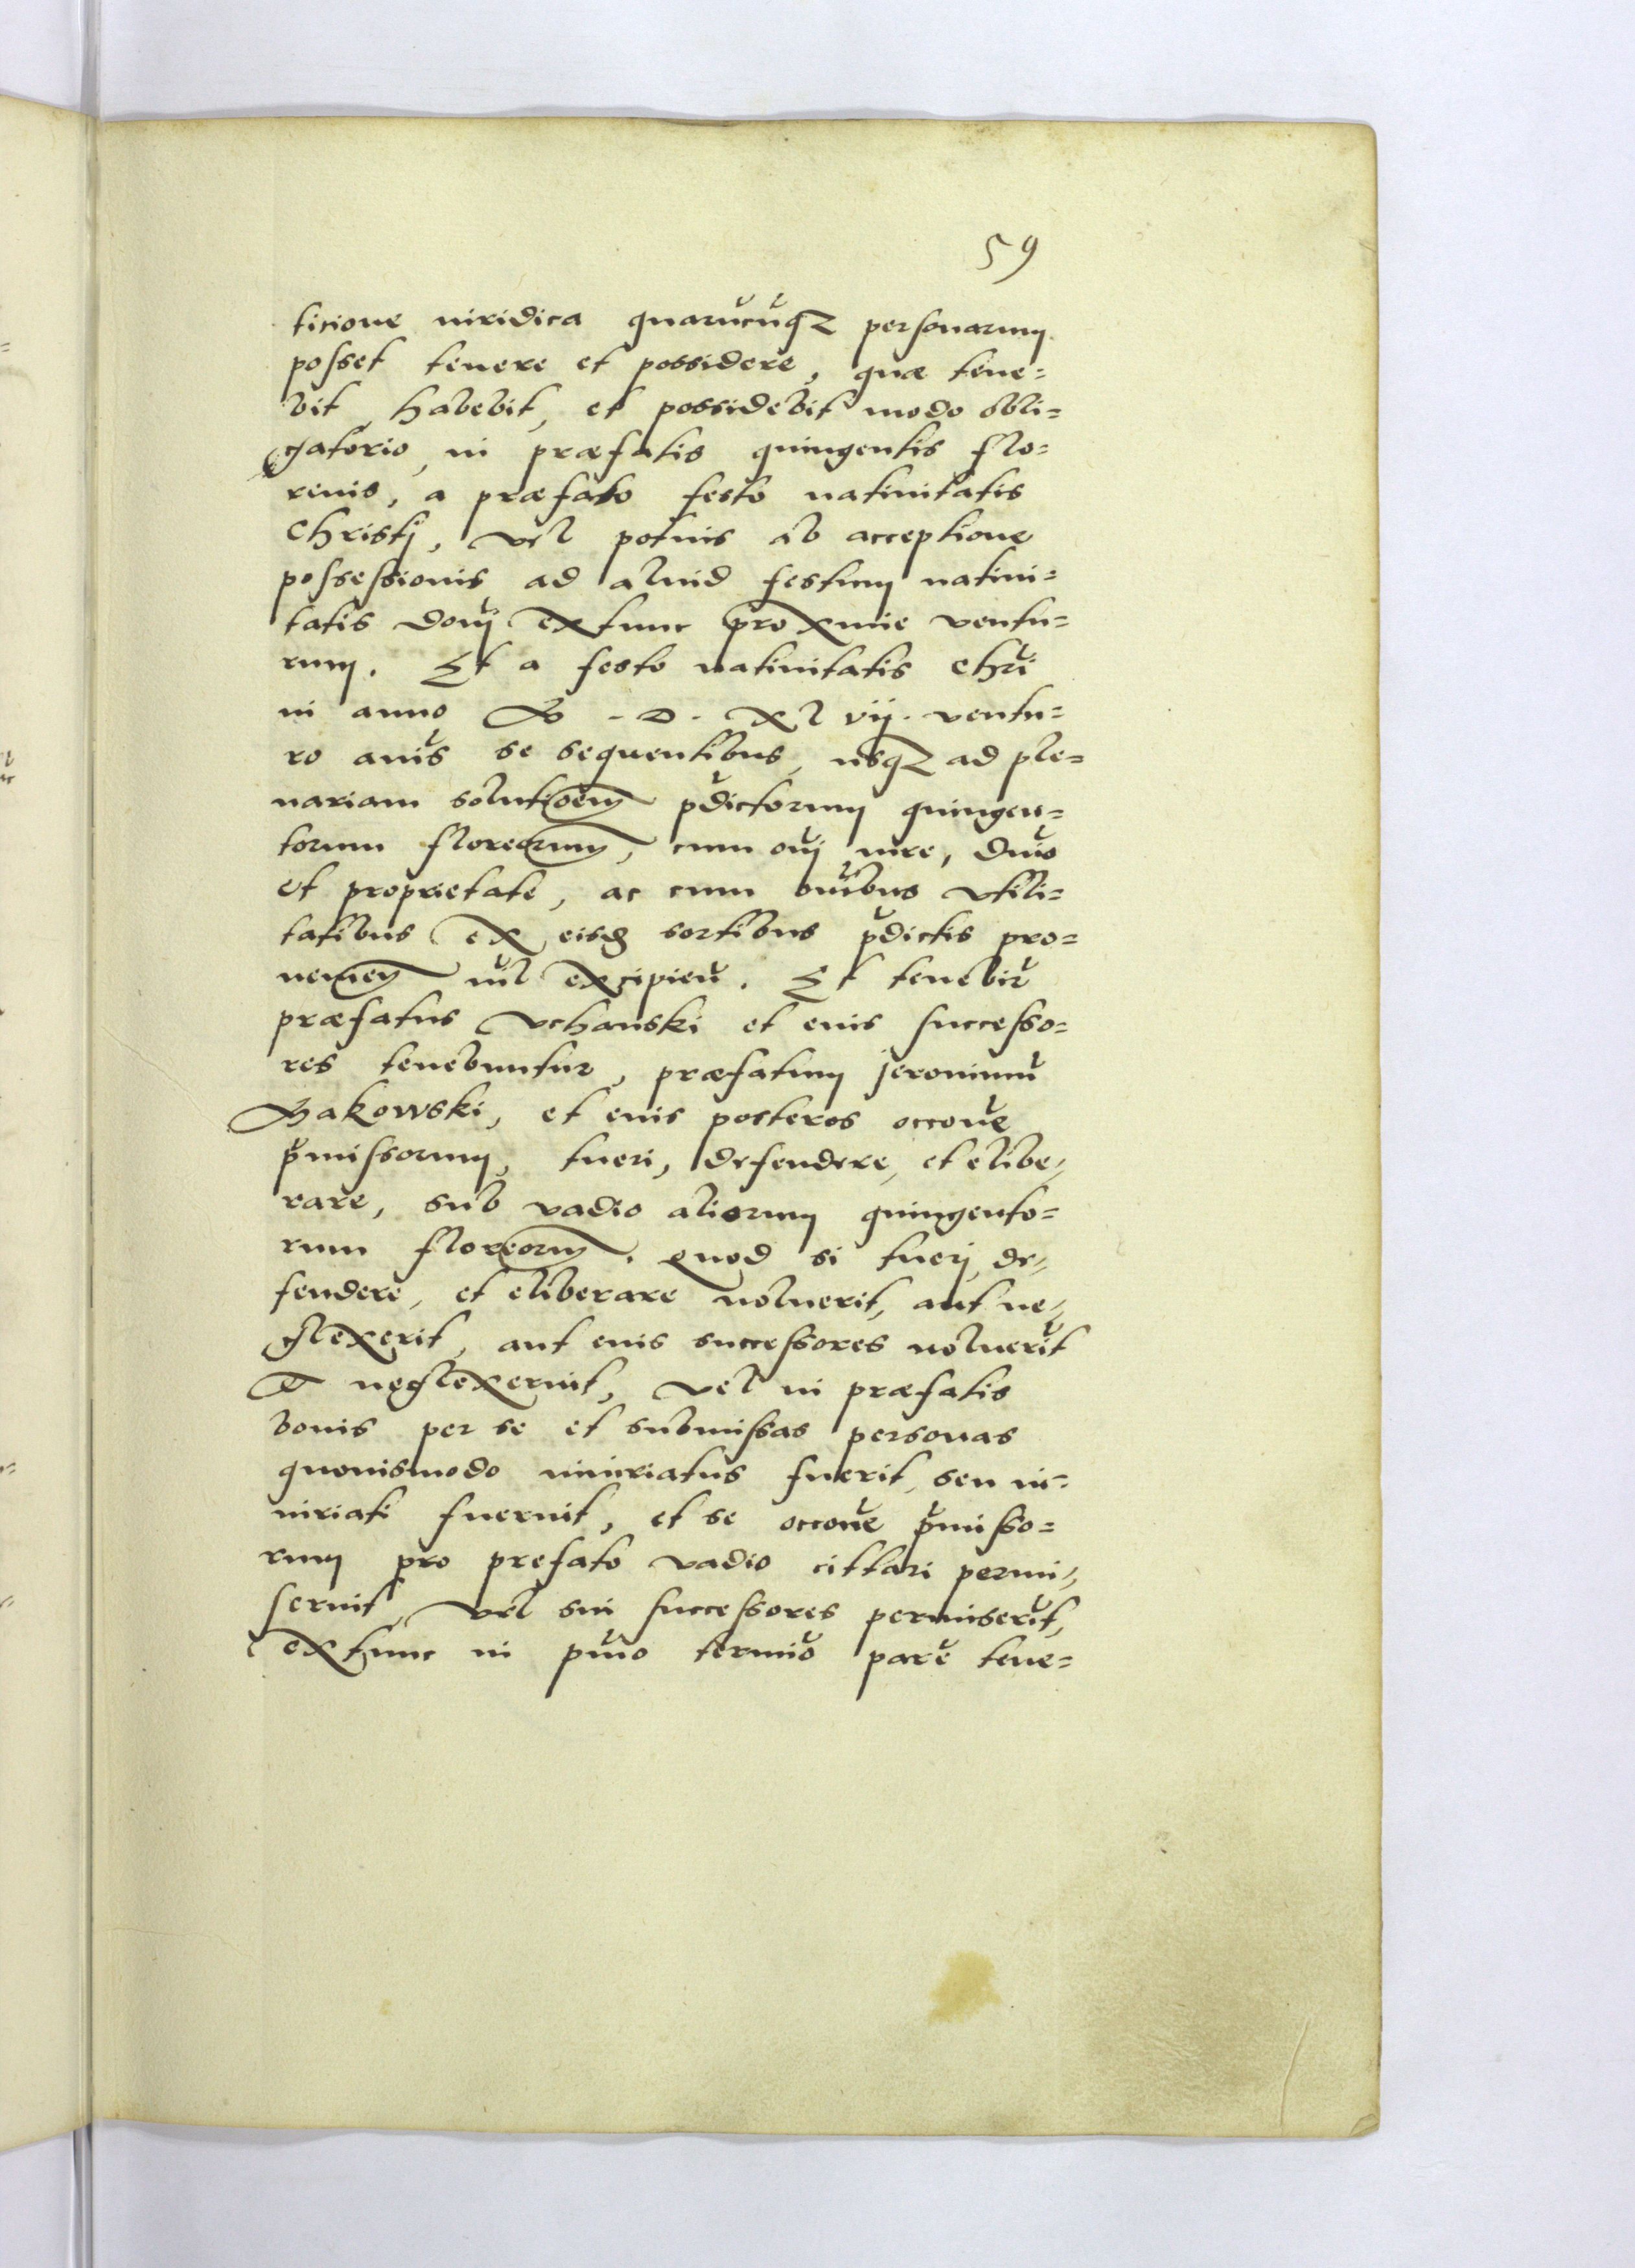 59
ticione iuridica quarũcũqz personarum
posset tenere et possidere, quæ tene=
bit, habebit, et possidebit modo obli=
gatorio, in præfatis quingentis flo=
renis, a præfato festo natiuitatis
Christi, vel potius ab acceptione
possessionis ad aliud festum natiui=
tatis Doñi extunc proxime ventu=
rum. Et a festo natiuitatis Chr̃i
in anno M. D. XL vij. ventu=
ro anĩs se sequentibus, usqz ad ple=
nariam solutioem p̃dictorum quingen=
torum floreorum, cum oñi iure, dñio
et proprietate, ac cum oñibus vtili=
tatibus ex eisd sortibus p̃dictis pro=
uenien nil excipieñ. Et tenebit̃
præfatus Vchanski et eius successo=
res tenebuntur, præfatum Jeronimũ
Makowski, et eius posteros occoñe
p̃missorum, tueri, defendere, et elibe=
rare, sub vadio aliorum quingento=
rum floreorum. Quod si tueri, de=
fendere, et eliberare noluerit, aut ne=
glexerit, aut eius successores noluerĩt
& neglexerint, vel in præfatis
bonis per se et submissas personas
quouismodo iniuriatus fuerit, seu in=
iuriati fuerint, et se occoñe p̃misso=
rum pro prefato vadio cittari permi=
serint, vel sui successores permiserĩt,
extunc in p̃mo termĩo parẽ tene=